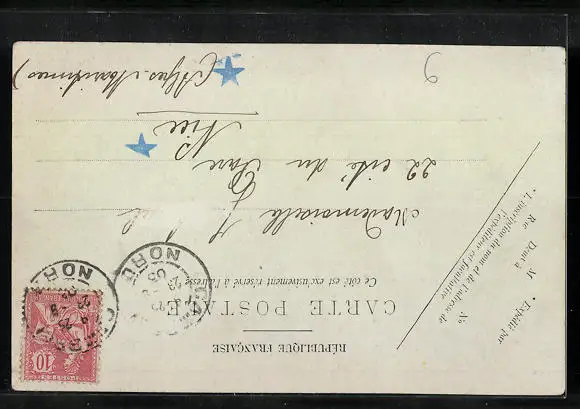 RÉPUBLIQUE FRANÇAISE
CARTE POSTALE
Ce côté est exclusivement réservé à l'adresse
Expédié par
M
Demt à
Rue No
* L'inscription du nom et de l'adresse de
l'expéditeur est facultative
Mademoiselle
22 cité du Parc
Nice
(Alpes-Maritimes)
10
POSTES
NORD
23
05
NORD